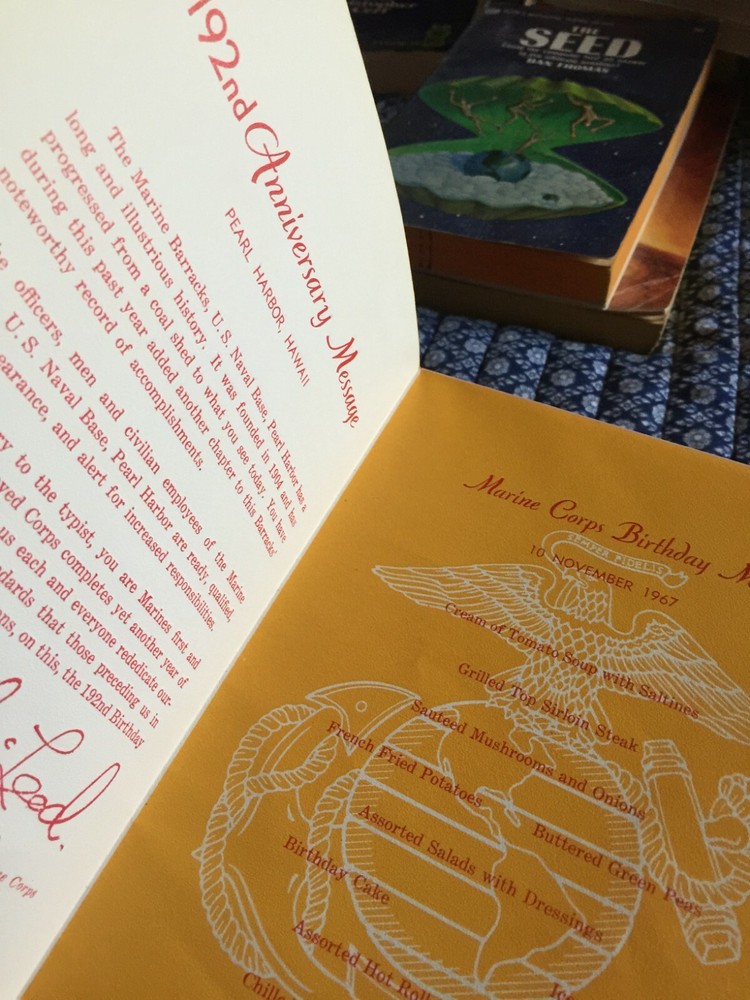 192nd Anniversary Message
PEARL HARBOR, HAWAII
The Marine Barracks, U.S. Naval Base, Pearl Harbor has a
long and illustrious history. It was founded in 1904 and has
progressed from a coal shed to what you see today. You have
during this past year added another chapter to this Barracks'
noteworthy record of accomplishments.
officers, men and civilian employees of the Marine
U.S. Naval Base, Pearl Harbor are ready, qualified,
and alert for increased responsibilities.
to the typist, you are Marines first and
Corps completes yet another year of
us each and everyone rededicate our-
that those preceding us in
on, this, the 192nd Birthday
Corps
THE
SEED
DAN THOMAS
Marine Corps Birthday
SEMPER FIDELIS
10 NOVEMBER 1967
Cream of Tomato Soup with Saltines
Grilled Top Sirloin Steak
Sauteed Mushrooms and Onions
French Fried Potatoes
Buttered Green Peas
Assorted Salads with Dressings
Birthday Cake
Assorted Hot Roll
Chille